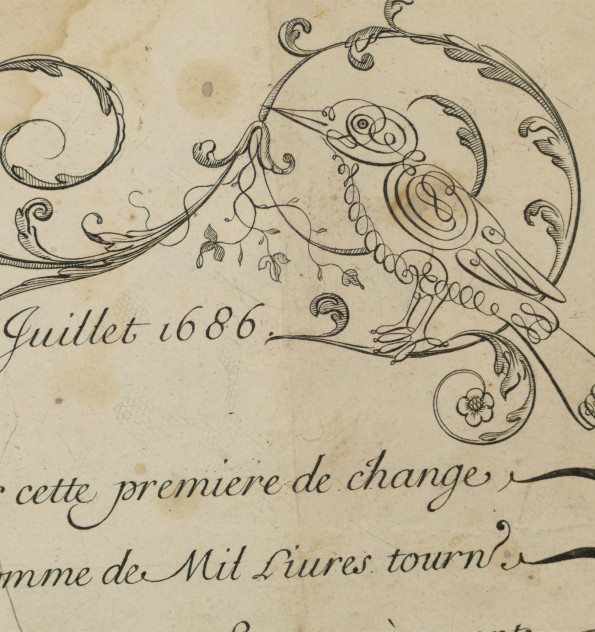 Juillet 1686.
cette premiere de change
omme de Mil Liures tourn.s